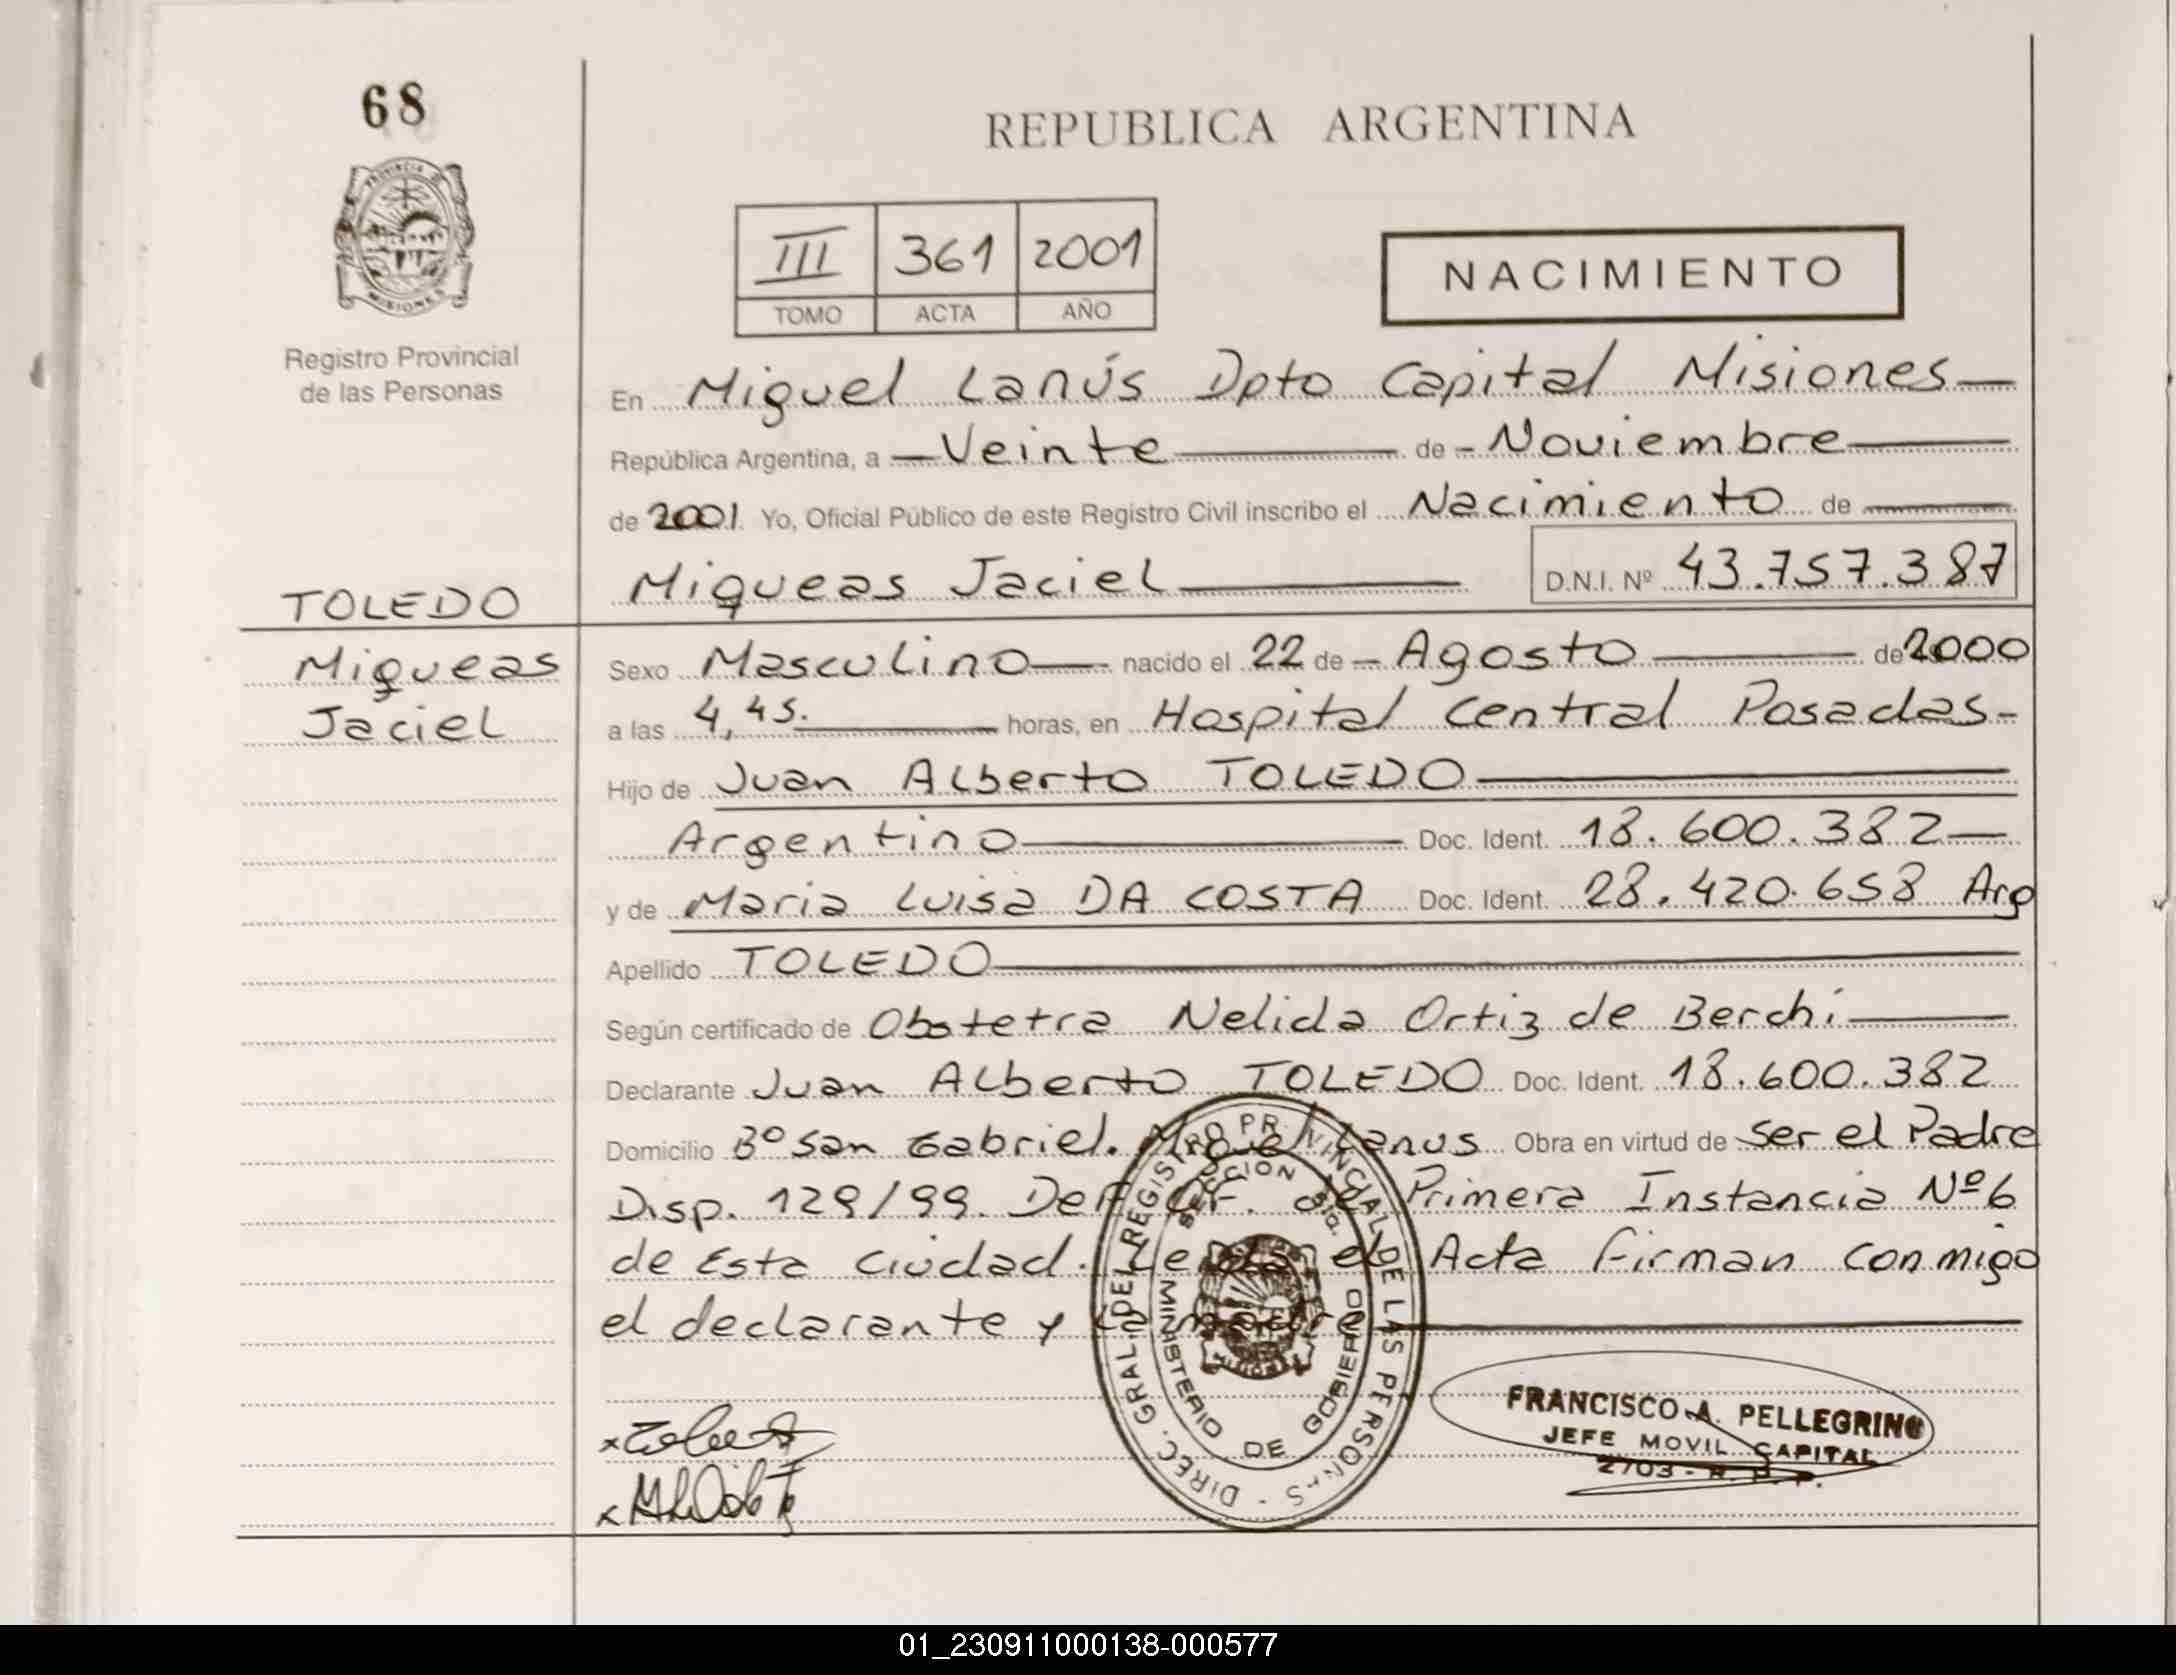 68
REPUBLICA ARGENTINA
PROVINCIA DE
MISIONES
III 361 2001
TOMO ACTA AÑO
NACIMIENTO
Registro Provincial
de las Personas
En Miguel Lanús Dpto Capital Misiones
República Argentina, a Veinte de Noviembre
de 2001. Yo, Oficial Público de este Registro Civil inscribo el Nacimiento de
Miqueas Jaciel D.N.I. Nº 43.757.387
TOLEDO
Miqueas
Jaciel
Sexo Masculino nacido el 22 de Agosto de 2000
a las 4,45. horas, en Hospital Central Posadas
Hijo de Juan Alberto TOLEDO
Argentino Doc. Ident. 18.600.382
y de Maria Luisa DA COSTA Doc. Ident. 28.420.658 Arg
Apellido TOLEDO
Según certificado de Obstetra Nelida Ortiz de Berchi
Declarante Juan Alberto TOLEDO Doc. Ident. 18.600.382
Domicilio Bº San Gabriel. Miguel Lanus Obra en virtud de ser el Padre
Disp. 129/99. Def. Of. de Primera Instancia Nº 6
de Esta Ciudad. Leida el Acta firman conmigo
el declarante y la madre
DIREC. GRAL. DEL REGISTRO PROVINCIAL DE LAS PERSONAS
SECCION
MINISTERIO DE GOBIERNO
FRANCISCO A. PELLEGRINO
JEFE MOVIL CAPITAL
2703 - R. P. P.
01_230911000138-000577